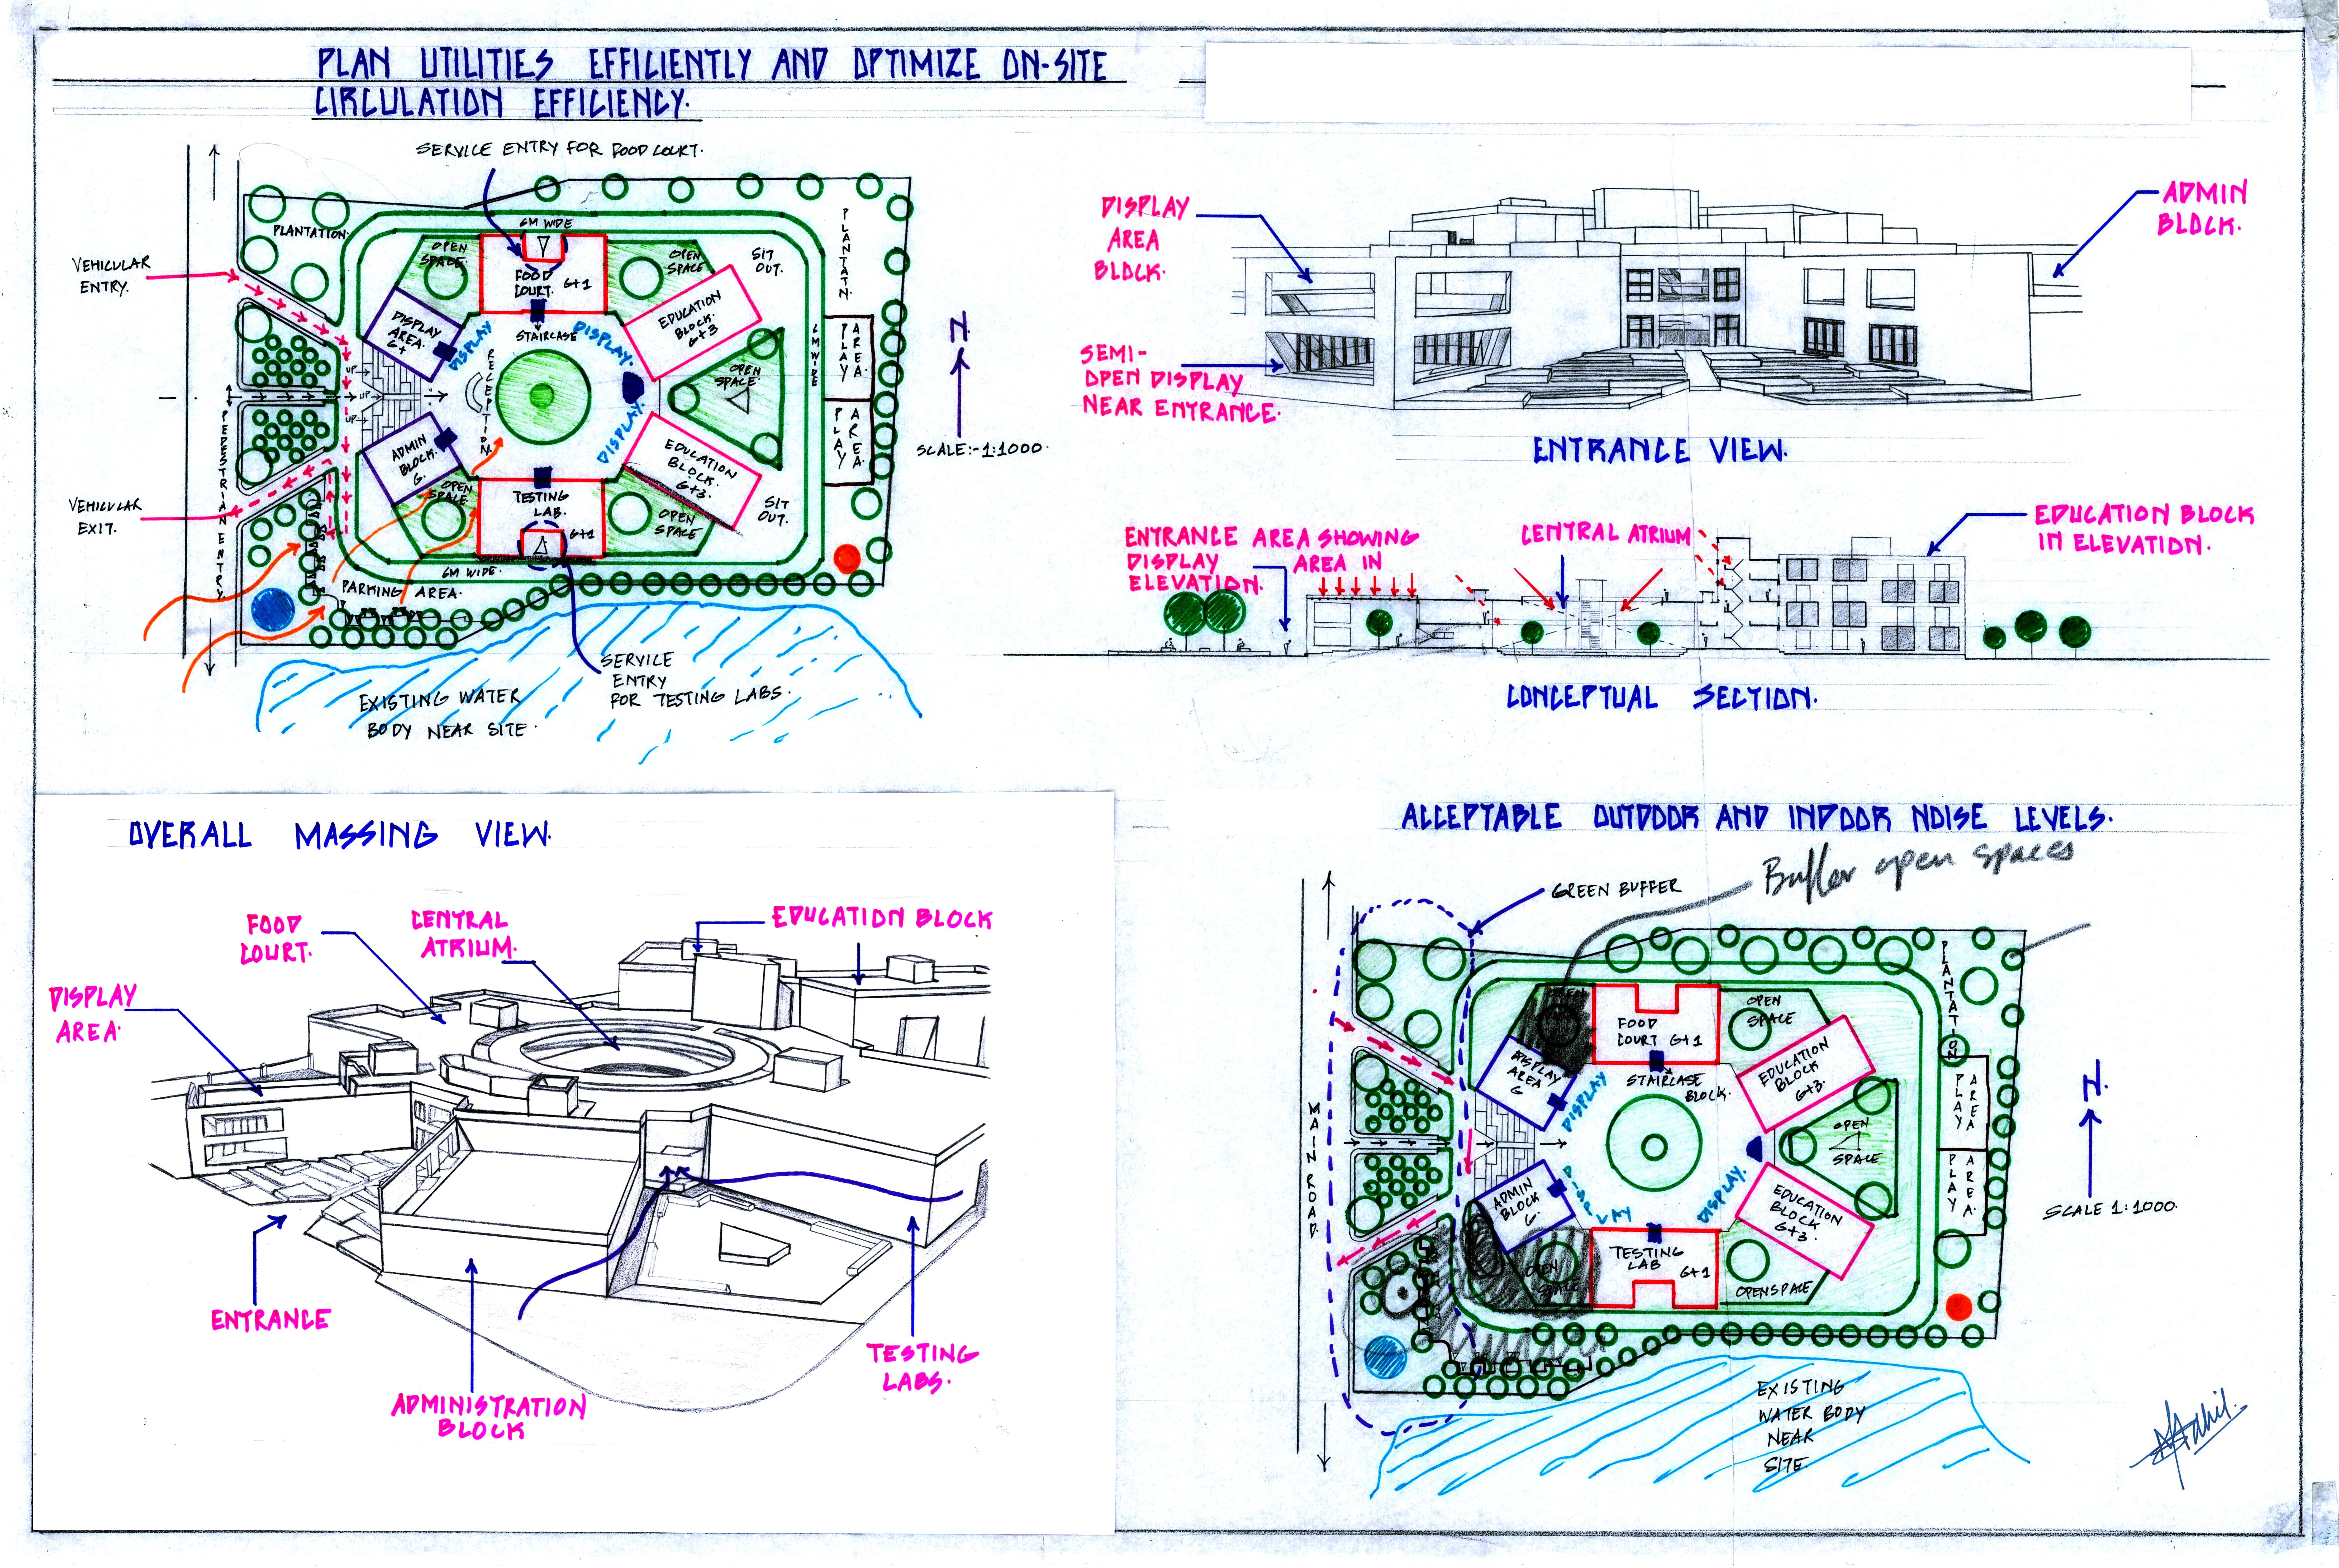 PLAN UTILITIES EFFICIENTLY AND OPTIMIZE ON-SITE
CIRCULATION EFFICIENCY.
SERVICE ENTRY FOR FOOD COURT.
PLANTATION.
VEHICULAR
ENTRY.
6M WIDE
OPEN
SPACE.
FOOD
COURT. G+1
OPEN
SPACE
SIT
OUT.
PLANTATN.
DISPLAY
AREA.
G+
DISPLAY
STAIRCASE
DISPLAY.
EDUCATION
BLOCK.
G+3
6M WIDE
PLAY
AREA
RECEPTION.
OPEN
SPACE
UP
UP
UP
PEDESTRIAN ENTRY.
PLAY
AREA.
N
SCALE:-1:1000.
ADMIN
BLOCK.
G.
DISPLAY.
EDUCATION
BLOCK.
G+3.
VEHICULAR
EXIT.
OPEN
SPACE
TESTING
LAB.
G+1
OPEN
SPACE
SIT
OUT.
6M WIDE.
PARKING AREA.
SERVICE
ENTRY
FOR TESTING LABS.
EXISTING WATER
BODY NEAR SITE.
DISPLAY
AREA
BLOCK.
ADMIN
BLOCK.
SEMI-
OPEN DISPLAY
NEAR ENTRANCE.
ENTRANCE VIEW.
ENTRANCE AREA SHOWING
DISPLAY AREA IN
ELEVATION.
CENTRAL ATRIUM
EDUCATION BLOCK
IN ELEVATION.
CONCEPTUAL SECTION.
OVERALL MASSING VIEW.
FOOD
COURT.
CENTRAL
ATRIUM.
EDUCATION BLOCK
DISPLAY
AREA.
ENTRANCE
ADMINISTRATION
BLOCK
TESTING
LABS.
ACCEPTABLE OUTDOOR AND INDOOR NOISE LEVELS.
Buffer open spaces
GREEN BUFFER
PLANTATION
OPEN
FOOD
COURT G+1
OPEN
SPACE
DISPLAY
AREA
G
DISPLAY
STAIRCASE
BLOCK.
EDUCATION
BLOCK
G+3
PLAY
AREA
MAIN ROAD.
OPEN
SPACE
PLAY
AREA
N.
SCALE 1:1000.
ADMIN
BLOCK
G.
DISPLAY
DISPLAY.
EDUCATION
BLOCK
G+3.
OPEN
SPACE
TESTING
LAB
G+1
OPENSPACE
EXISTING
WATER BODY
NEAR
SITE